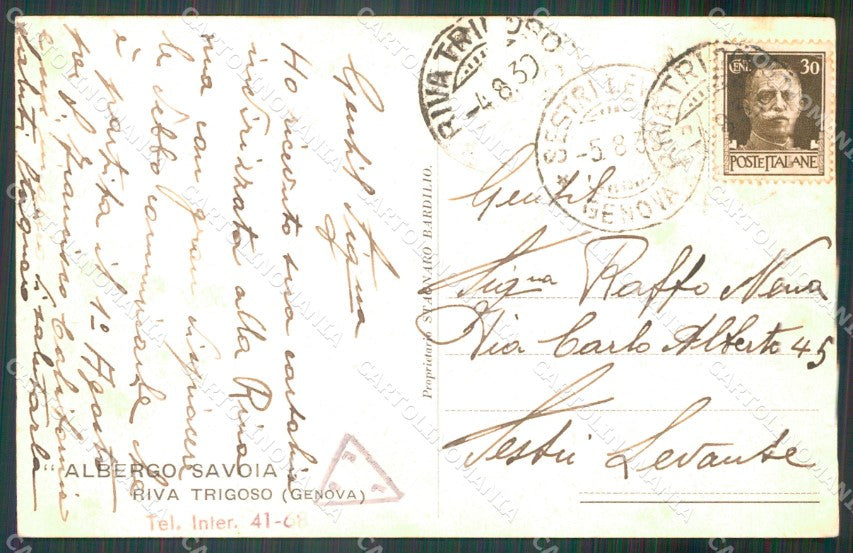 Gentil Sig.na
Ho ricevuto sua cartolina
indirizzata alla Rina
ma con gran dispiacere
le debbo comunicarle che
è partita il 1º Agosto
per S. Francesco California
di salutarla
Saluti
"ALBERGO SAVOIA"
RIVA TRIGOSO (GENOVA)
Tel. Inter. 41-68
Proprietario STAGNARO BARDILIO.
RIVA TRIGOSO
-4.8.30
SESTRI LEVANTE
-5.8.3
GENOVA
RIVA TRIGOSO
CENT. 30
POSTE ITALIANE
Gentil
Signa Raffo Nena
Via Carlo Alberto 45
Sestri Levante
CARTOLINOMANIA